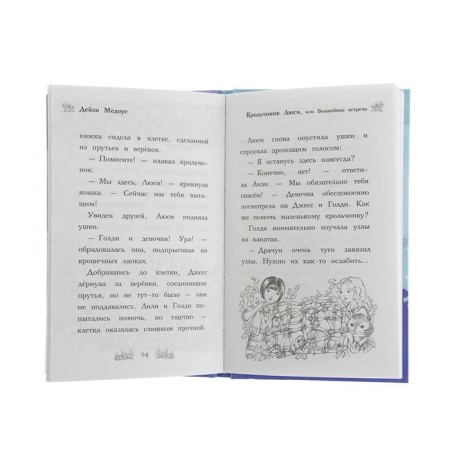 Дейзи Медоус
няжка сидела в клетке, сделанной
из прутьев и верёвок.
— Помогите! — плакал крольчо-
нок.
— Мы здесь, Люси! — крикнула
кошка. — Сейчас мы тебя выта-
щим!
Увидев друзей, Люси подняла
ушки.
— Голди и девочки! Ура! —
обрадовалась она, подпрыгивая на
крошечных лапках.
Добравшись до клетки, Джесс
дёрнула за верёвки, соединявшие
прутья, но не тут-то было — они
не поддавались. Лили и Голди по-
пытались помочь, но тщетно —
клетка оказалась слишком прочной.
94
Крольчонок Люси, или Волшебная встреча
Люси снова опустила ушки и
спросила дрожащим голосом:
— Я останусь здесь навсегда?
— Конечно, нет! — ответи-
ла Лили. — Мы обязательно тебя
спасём! — Девочка обеспокоенно
посмотрела на Джесс и Голди. Как
же помочь маленькому крольчонку?
Голди внимательно изучала узлы
на канатах.
— Драчун очень туго завязал
узлы. Нужно их как-то ослабить...